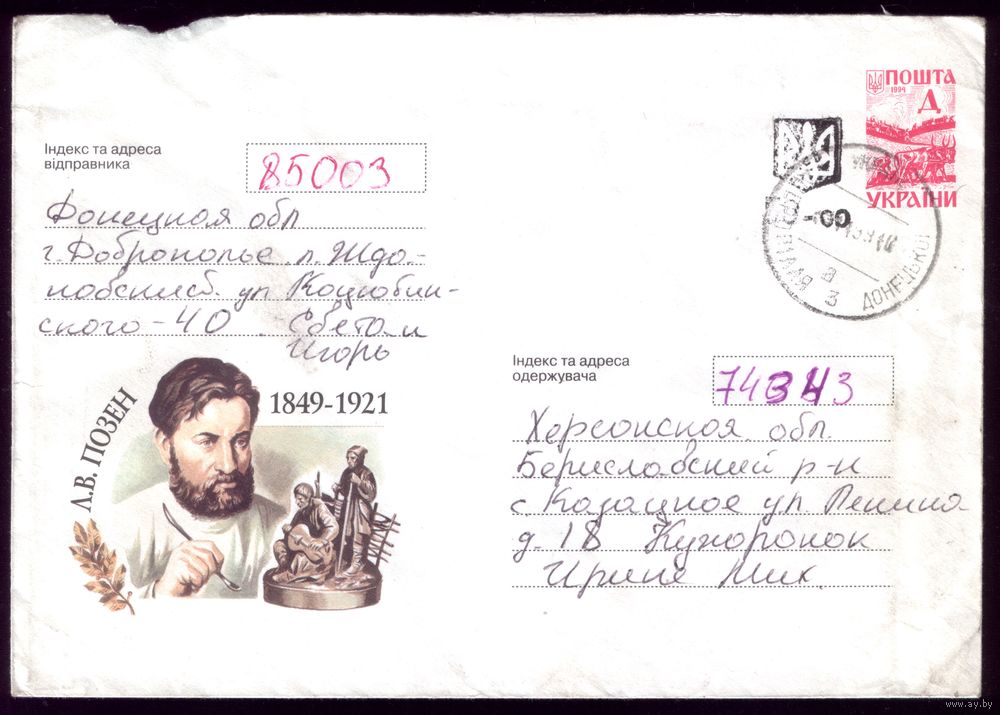 ПОШТА
1994
Д
УКРАЇНИ
Індекс та адреса
відправника
85003
Донецкая обл
г. Доброполье п. Ждо-
ул Коцюбин-
ского - 40 Света и
Игорь
ДОНЕЦЬКОЇ
3
Л.В. ПОЗЕН
1849-1921
Індекс та адреса
одержувача
74343
Херсонская обл.
Бериславский р-н
с. Казацкое ул Ленина
д. 18
Ирине Мих
www.ay.by